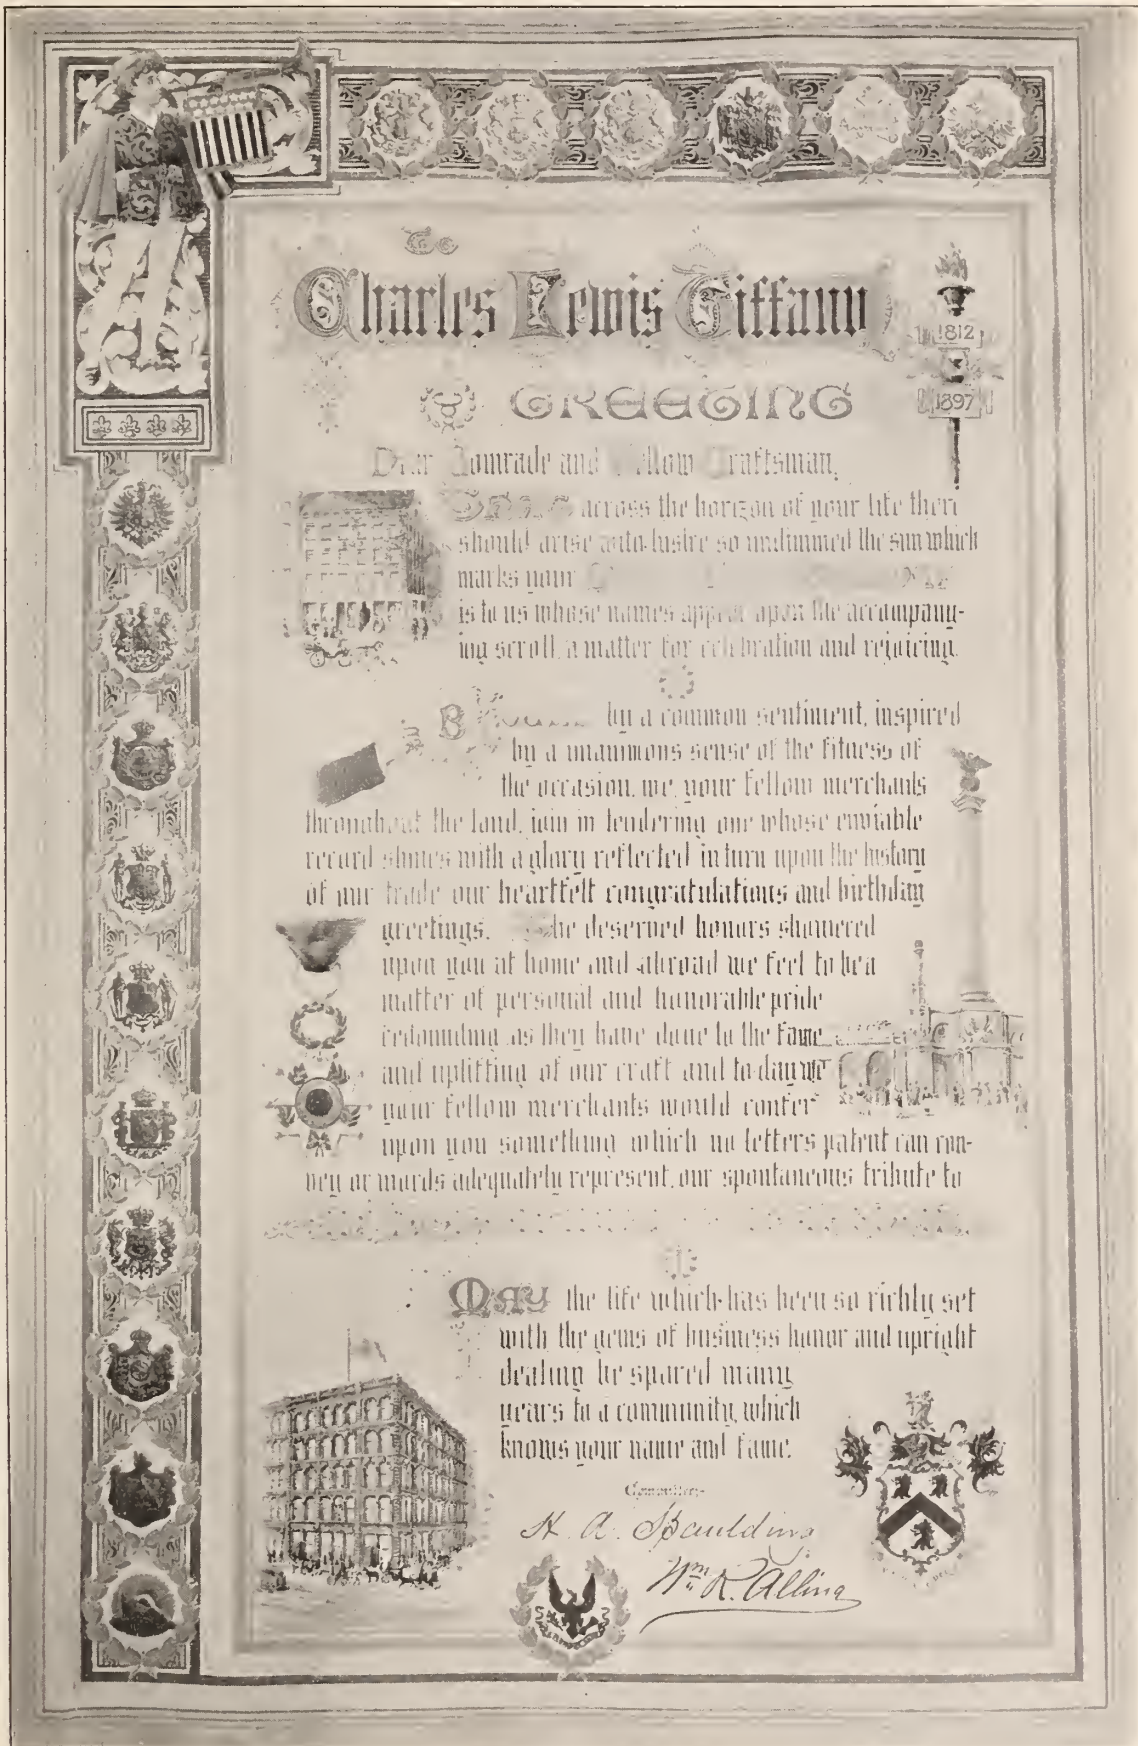 To
Charles Lewis Tiffany
1812
1897
GREETING
Dear Comrade and Fellow Craftsman,
across the horizon of your life there
should arise auto-lustre so undimmed the sun which
marks your
is to us whose names appear upon the accompany-
ing scroll, a matter for celebration and rejoicing.
by a common sentiment, inspired
by a unanimous sense of the fitness of
the occasion, we, your fellow merchants
throughout the land, join in tendering one whose enviable
record shines with a glory reflected in turn upon the history
of our trade our heartfelt congratulations and birthday
greetings. The deserved honors showered
upon you at home and abroad we feel to be a
matter of personal and honorable pride
redounding as they have done to the fame
and uplifting of our craft and to-day we
your fellow merchants would confer
upon you something which no letters patent can con-
vey or words adequately represent, our spontaneous tribute to
MAY the life which has been so richly set
with the gems of business honor and upright
dealing be spared many
years to a community, which
knows your name and fame.
Committee
H. A. Spaulding
Wm. R. Alling